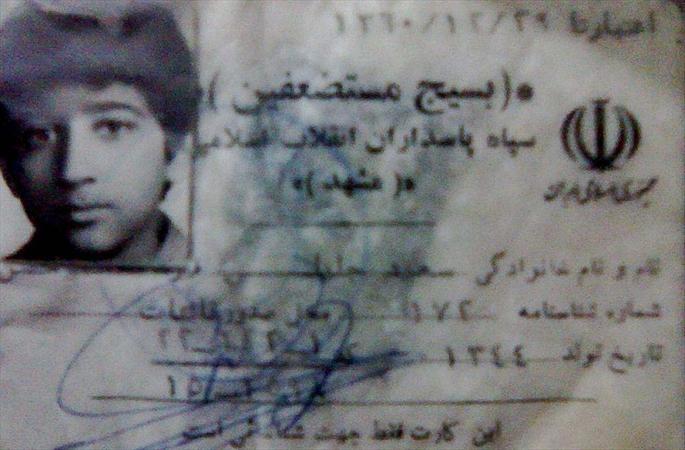 اعتبار تا ۱۳۶۰/۱۲/۲۹
*(بسیج مستضعفین)*
سپاه پاسداران انقلاب اسلامی
«(مشهد)»
جمهوری اسلامی ایران
نام و نام خانوادگی سعید
شماره شناسنامه ۱۷۲ محل صدور
تاریخ تولد ۱۳۴۴
این کارت فقط جهت شناسائی است